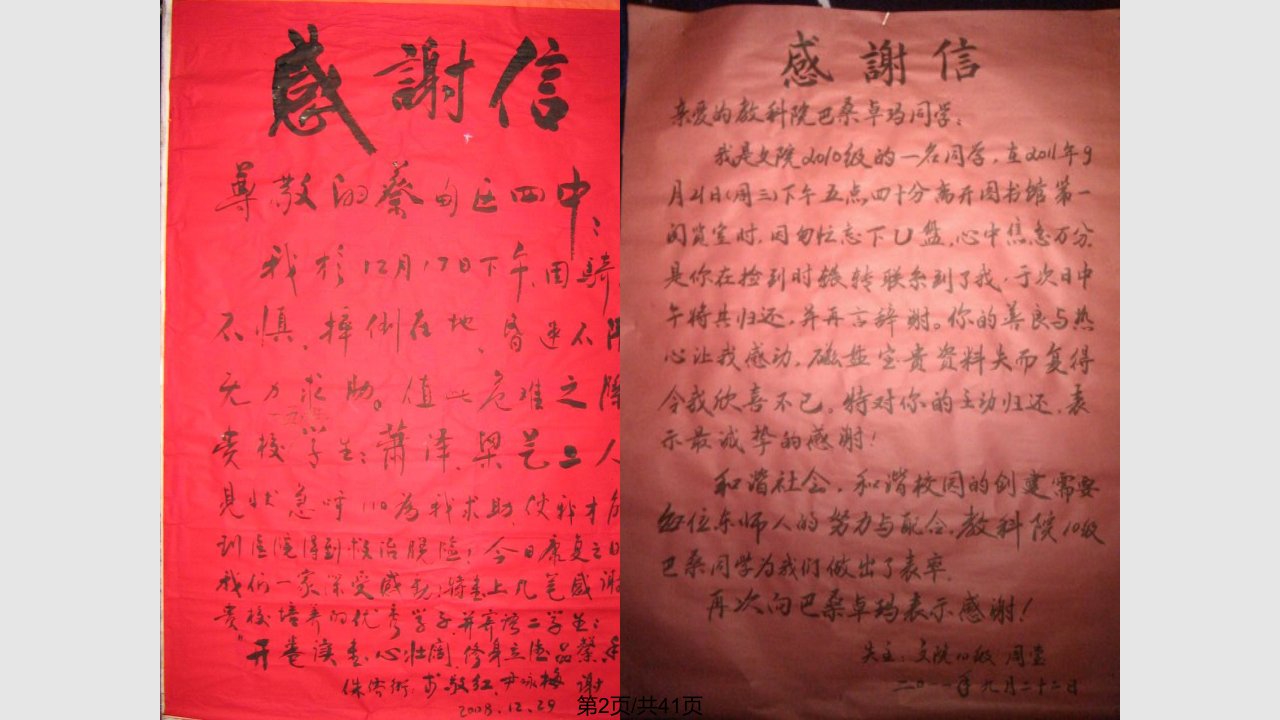 感謝信
尊敬的蔡甸区四中：
我於12月17日下午，因騎
不慎，摔倒在地，昏迷不
无力求助。值此危难之际
贵校学生：萧泽、梁艺二人
見状急呼110為我求助，使我才
医院得到救治脱险！今日康复之日
我们一家深受感动，特书上几笔感谢
贵校培养的优秀学子，并寄语二学生：
"开卷读书心壮阔，修身立德品
敬红、尹咏梅 谢
2008.12.29
感謝信
亲爱的教科院巴桑卓玛同学：
我是文院2010级的一名同学，在2011年9
月21日(周三)下午五点四十分离开图书馆第一
阅览室时，因匆忙忘下U盘，心中焦急万分，
是你在捡到时辗转联系到了我，于次日中
午将其归还，并再言辞谢。你的善良与热
心让我感动，磁盘宝贵资料失而复得
令我欣喜不已。特对你的主动归还，表
示最诚挚的感谢！
和谐社会，和谐校园的创建需要
每位东师人的努力与配合，教科院10级
巴桑同学为我们做出了表率。
再次向巴桑卓玛表示感谢！
失主：文院10级 周莹
二〇一一年九月二十二日
第2页/共41页